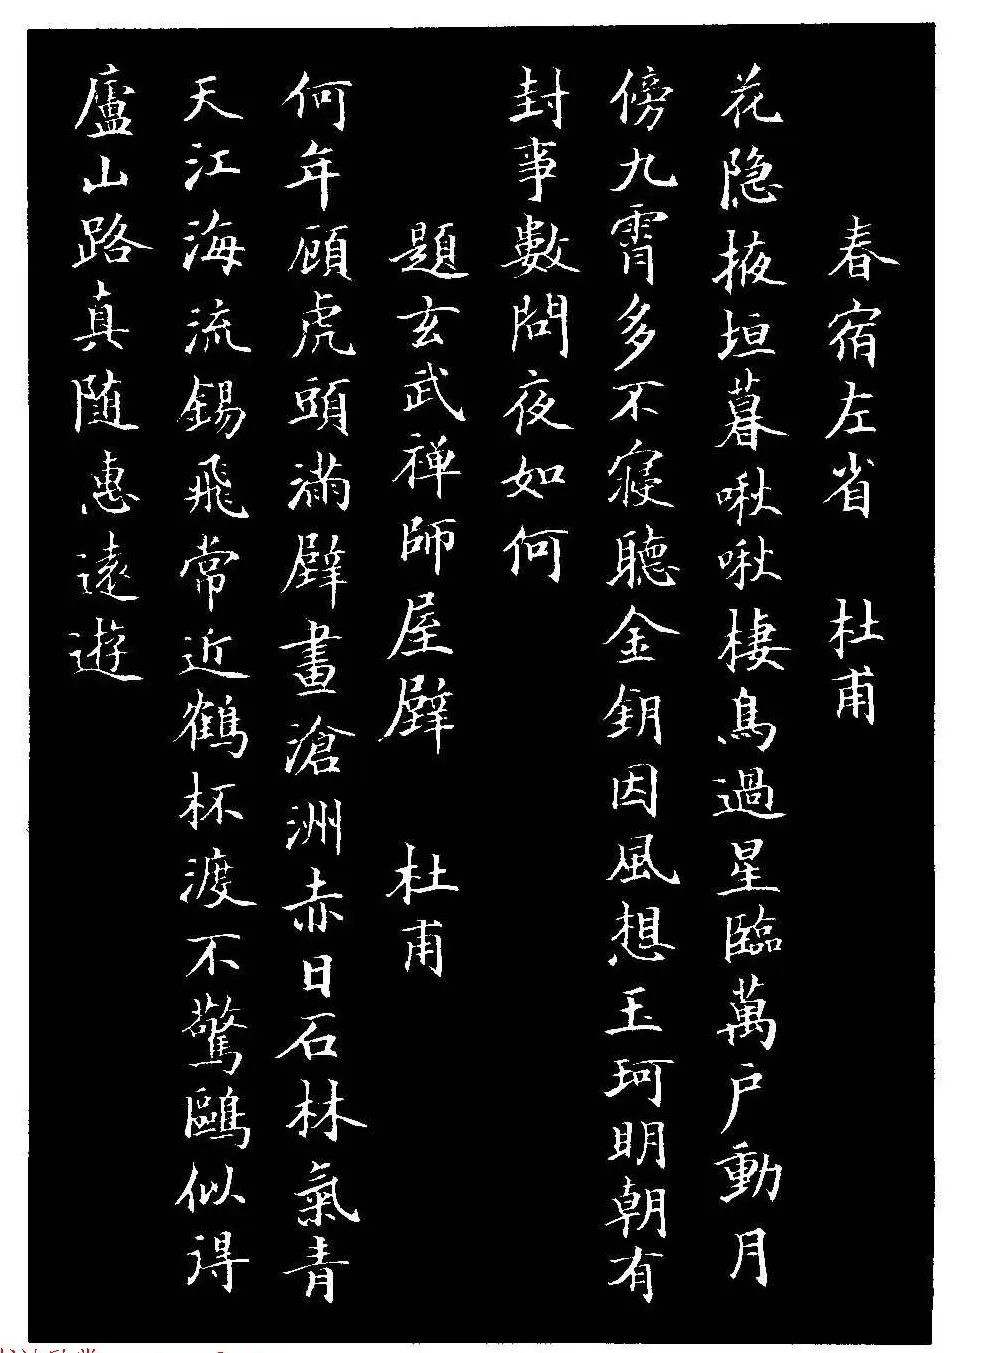 春宿左省 杜甫
花隐掖垣暮啾啾棲鳥過星臨萬户動月
傍九霄多不寢聽金鈅因風想玉珂明朝有
封事數問夜如何
題玄武禅師屋壁 杜甫
何年顧虎頭滿壁畫滄洲赤日石林氣青
天江海流錫飛常近鶴杯渡不驚鷗似得
廬山路真随惠遠遊